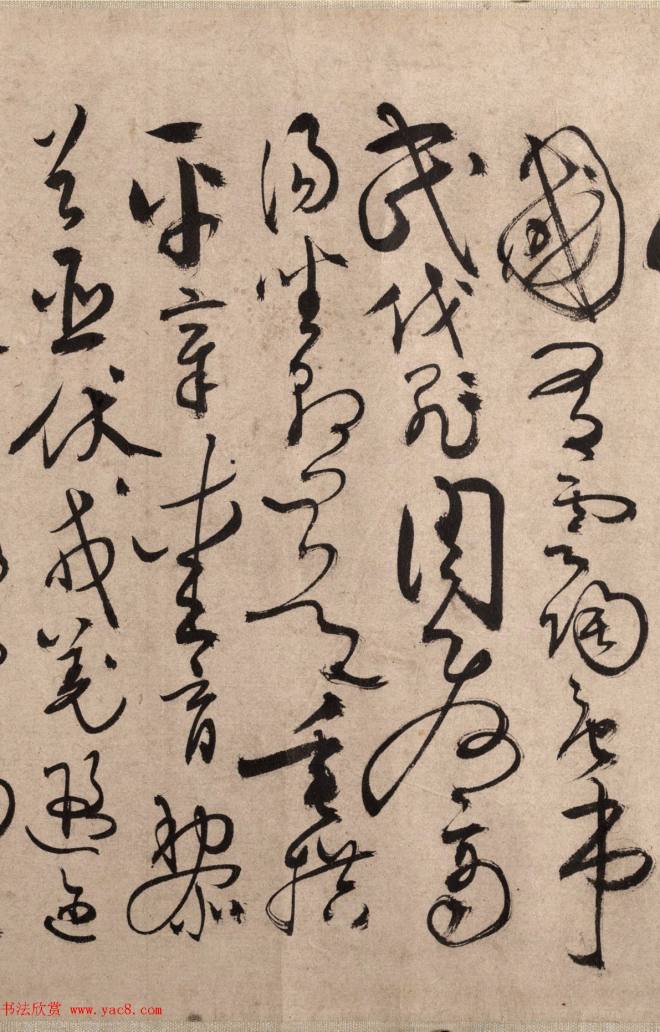 國有虞陶唐弔
民伐罪周發商
湯坐朝問道垂拱
平章愛育黎
首臣伏戎羌遐邇
书法欣赏 www.yac8.com